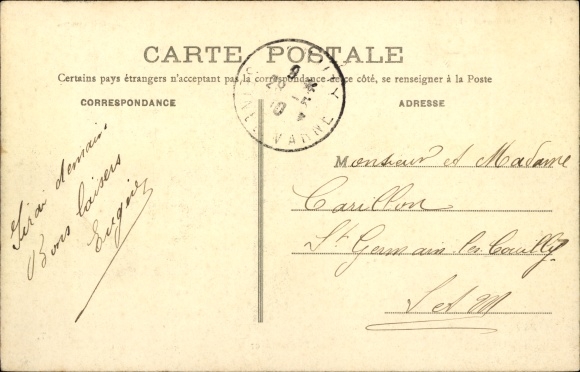 CARTE POSTALE
Certains pays étrangers n'acceptant pas la correspondance de ce côté, se renseigner à la Poste
CORRESPONDANCE
ADRESSE
Irai demain
Bons baisers
Eugénie
Monsieur et Madame
Carillon
St Germain les Couilly
S et M